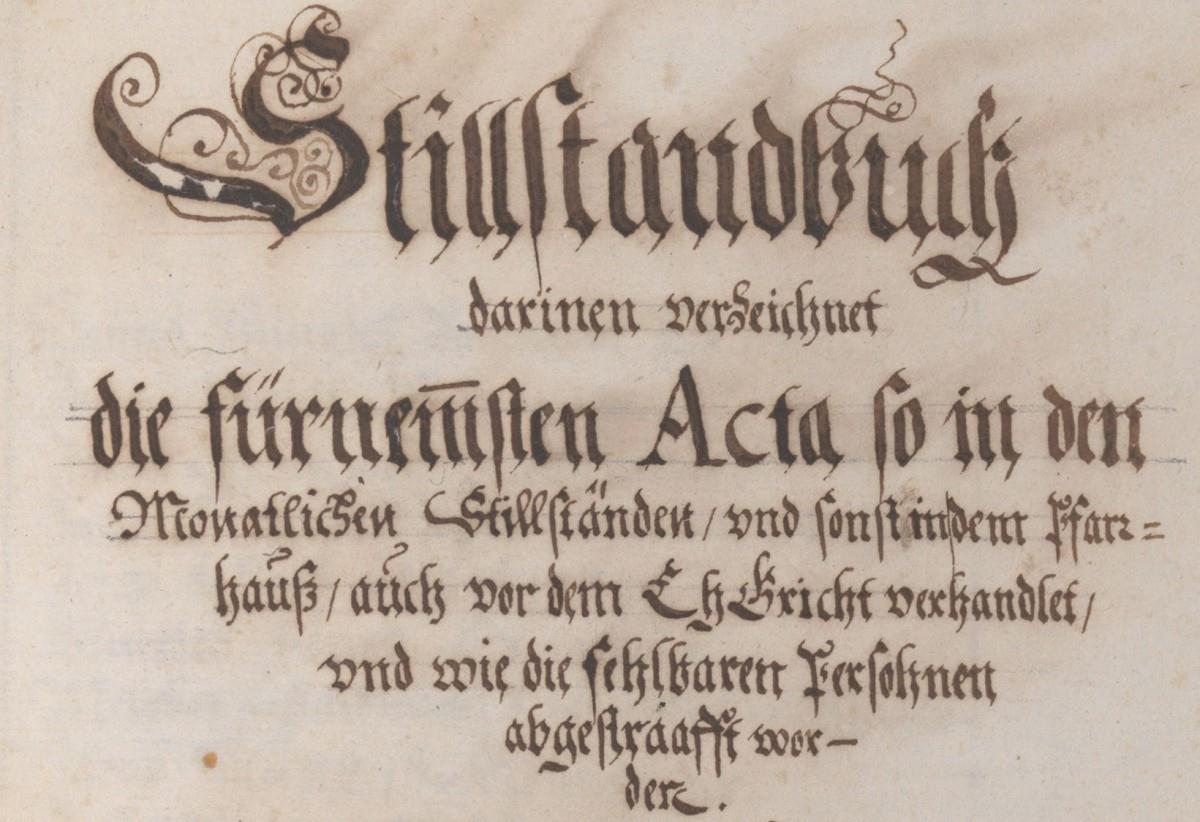 Stillstandbuch
darinen verzeichnet
die fürnem̅sten Acta so in den
Monatlichen Stillständen / vnd sonst in dem Pfarr=
hauß / auch vor dem EhGricht verhandlet /
vnd wie die fehlbaren Persohnen
abgestraafft wor–
den .